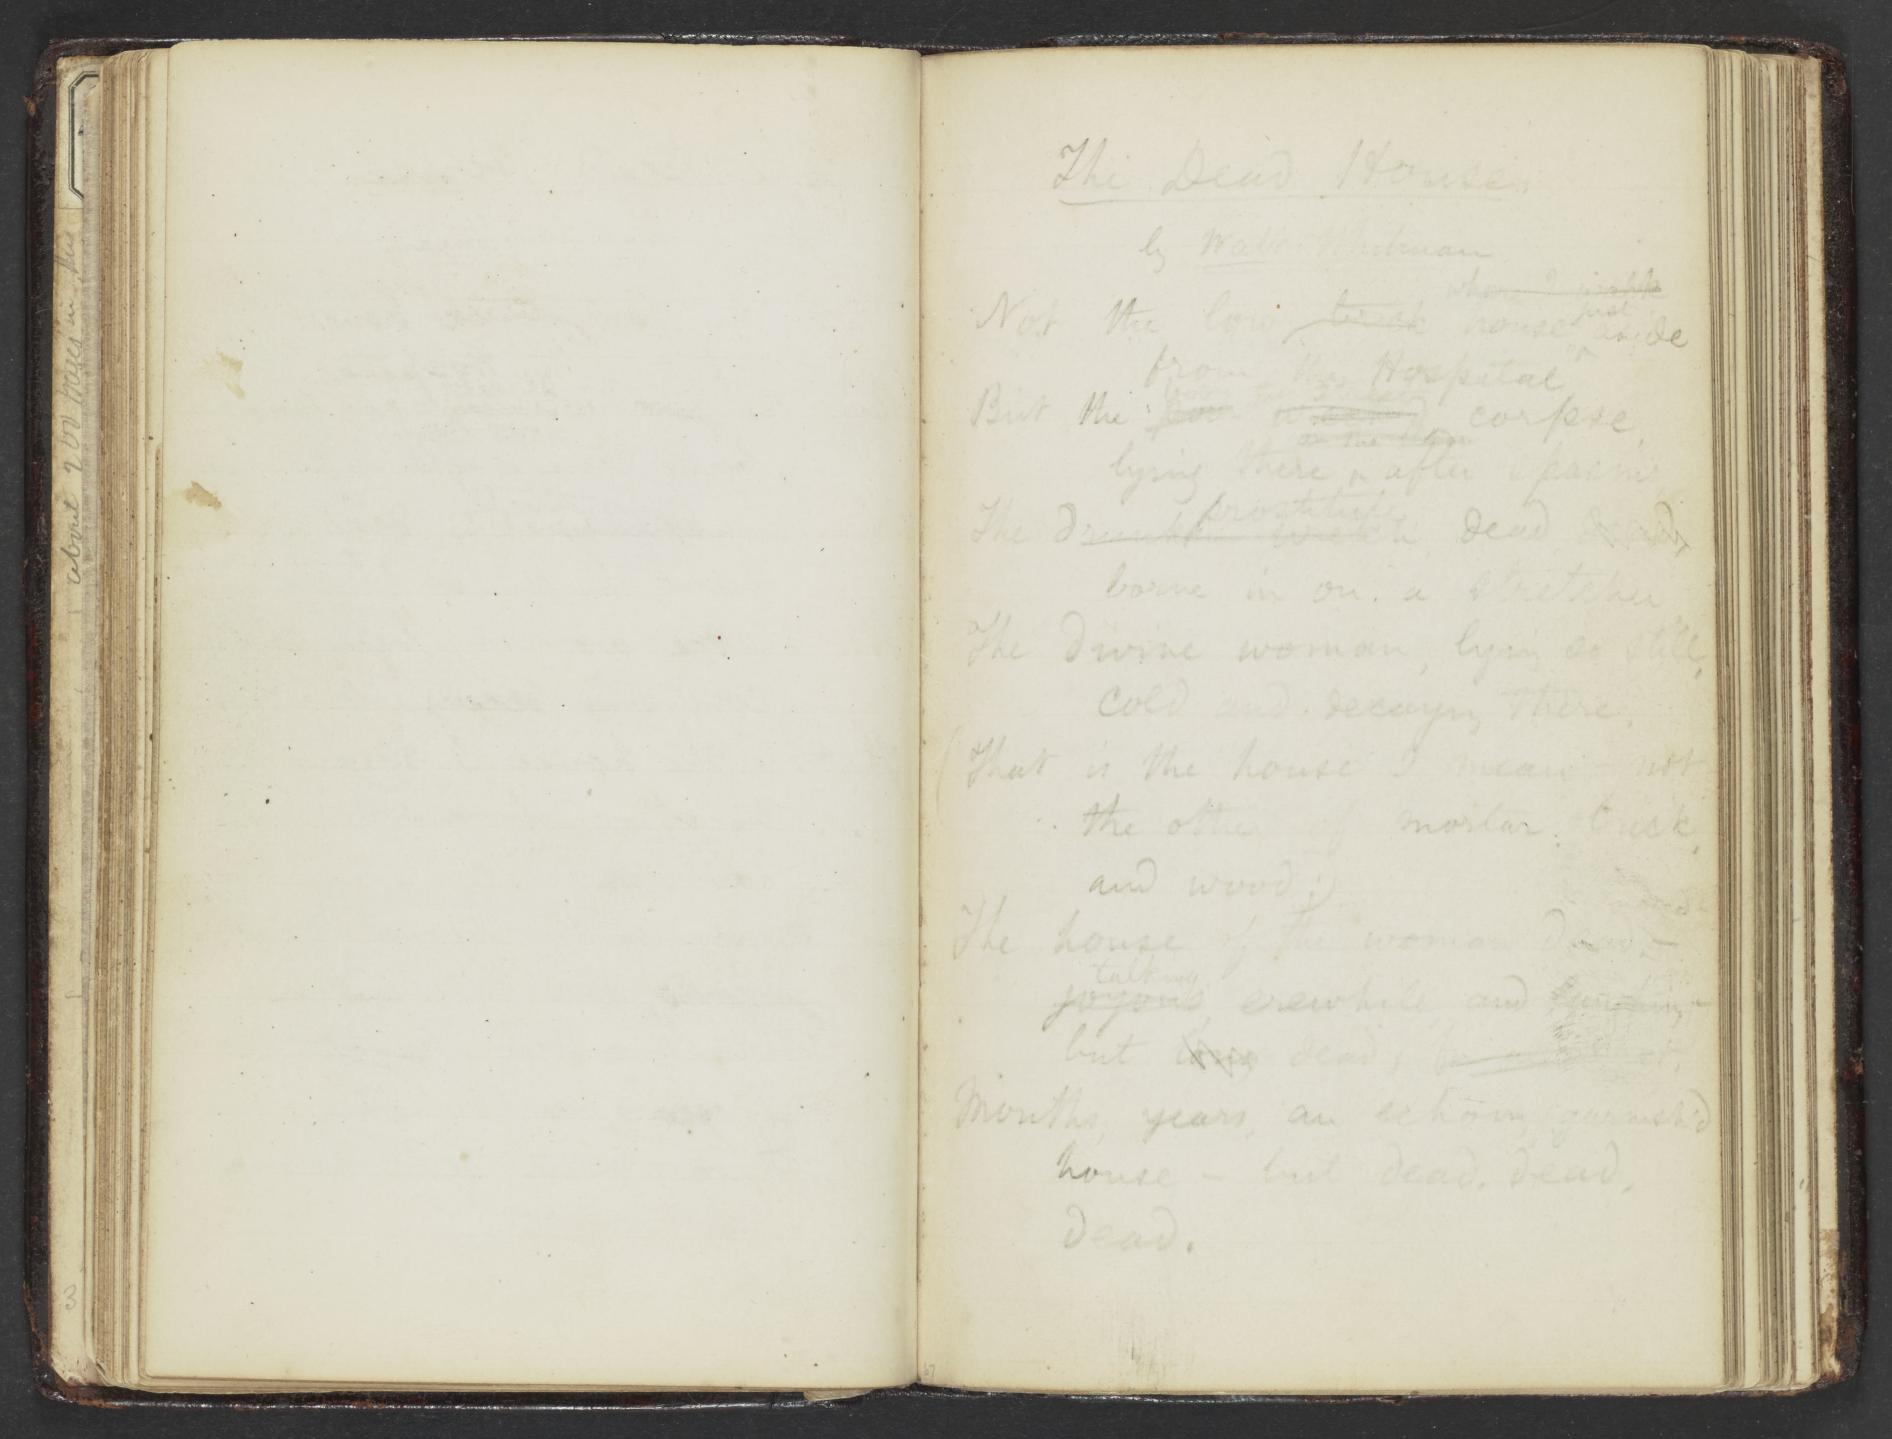 about 200 pages in, her
3
The Dead House.
by Walt Whitman
where I
Not the low brick house just aside
from the Hospital
But the poor corpse,
lying there after spasms
prostitute
The Drunken dead dead,
borne in on a stretcher
The Divine woman, lying so still,
cold and decaying there,
(That is the house I mean – not
the other of mortar, brick,
and wood;)
The house of the woman Dead,–
talking
joyous, erewhile, and
but dead;
Months, years, an echoing garnish'd
house – but dead, dead,
dead.